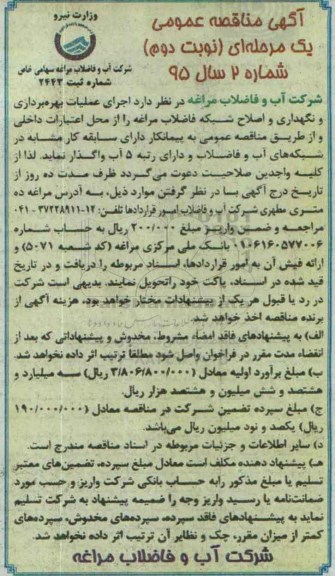 آگهی مناقصه عمومی
یک مرحله‌ای (نوبت دوم)
شماره ۲ سال ۹۵
وزارت نیرو
شرکت آب و فاضلاب مراغه سهامی خاص
شماره ثبت ۲۴۴۳
شرکت آب و فاضلاب مراغه در نظر دارد اجرای عملیات بهره‌برداری
و نگهداری و اصلاح شبکه فاضلاب مراغه را از محل اعتبارات داخلی
و از طریق مناقصه عمومی به پیمانکار دارای سابقه کار مشابه در
شبکه‌های آب و فاضلاب و دارای رتبه ۵ آب واگذار نماید. لذا از
کلیه واجدین صلاحیت دعوت می‌گردد ظرف مدت ده روز از
تاریخ درج آگهی با در نظر گرفتن موارد ذیل، به آدرس مراغه ده
متری مطهری شرکت آب و فاضلاب امور قراردادها تلفن: ۱۲-۳۷۲۲۸۹۱۱-۰۴۱
مراجعه و ضمن واریز مبلغ ۲۰۰/۰۰۰ ریال به حساب شماره
۰۱۰۶۱۶۰۵۷۷۰۰۶ بانک ملی مرکزی مراغه (کد شعبه ۵۰۷۱) و
ارائه فیش آن به امور قراردادها، اسناد مربوطه را دریافت و در تاریخ
قید شده در اسناد، پاکت خود راتحویل نمایند. بدیهی است شرکت
در رد یا قبول هر یک از پیشنهادات مختار خواهد بود، هزینه آگهی از
برنده مناقصه اخذ خواهد شد.
الف) به پیشنهادهای فاقد امضاء، مشروط، مخدوش و پیشنهاداتی که بعد از
انقضاء مدت مقرر در فراخوان واصل شود مطلقا ترتیب اثر داده نخواهد شد.
ب) مبلغ برآورد اولیه معادل (۳/۸۰۶/۸۰۰/۰۰۰ ریال) سه میلیارد و
هشتصد و شش میلیون و هشتصد هزار ریال.
ج) مبلغ سپرده تضمین شرکت در مناقصه معادل (۱۹۰/۰۰۰/۰۰۰
ریال) یکصد و نود میلیون ریال می‌باشد.
د) سایر اطلاعات و جزئیات مربوطه در اسناد مناقصه مندرج است.
هـ) پیشنهاد دهنده مکلف است معادل مبلغ سپرده، تضمین‌های معتبر
تسلیم یا مبلغ مذکور رابه حساب بانکی شرکت واریز و حسب مورد
ضمانت‌نامه یا رسید واریز وجه را ضمیمه پیشنهاد به شرکت تسلیم
نماید به پیشنهادهای فاقد سپرده، سپرده‌های مخدوش، سپرده‌های
کمتر از میزان مقرر، چک و نظایر آن ترتیب اثر داده نخواهد شد.
شرکت آب و فاضلاب مراغه